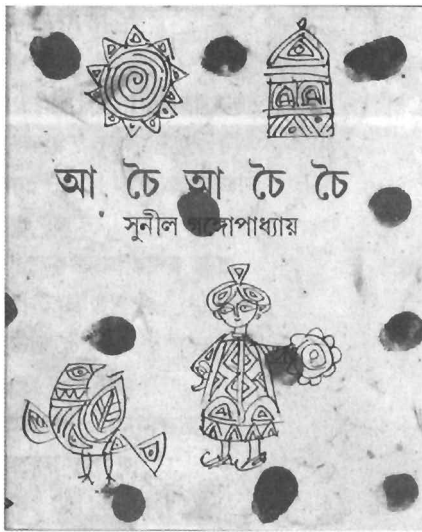 আ চৈ আ চৈ চৈ
সুনীল গঙ্গোপাধ্যায়